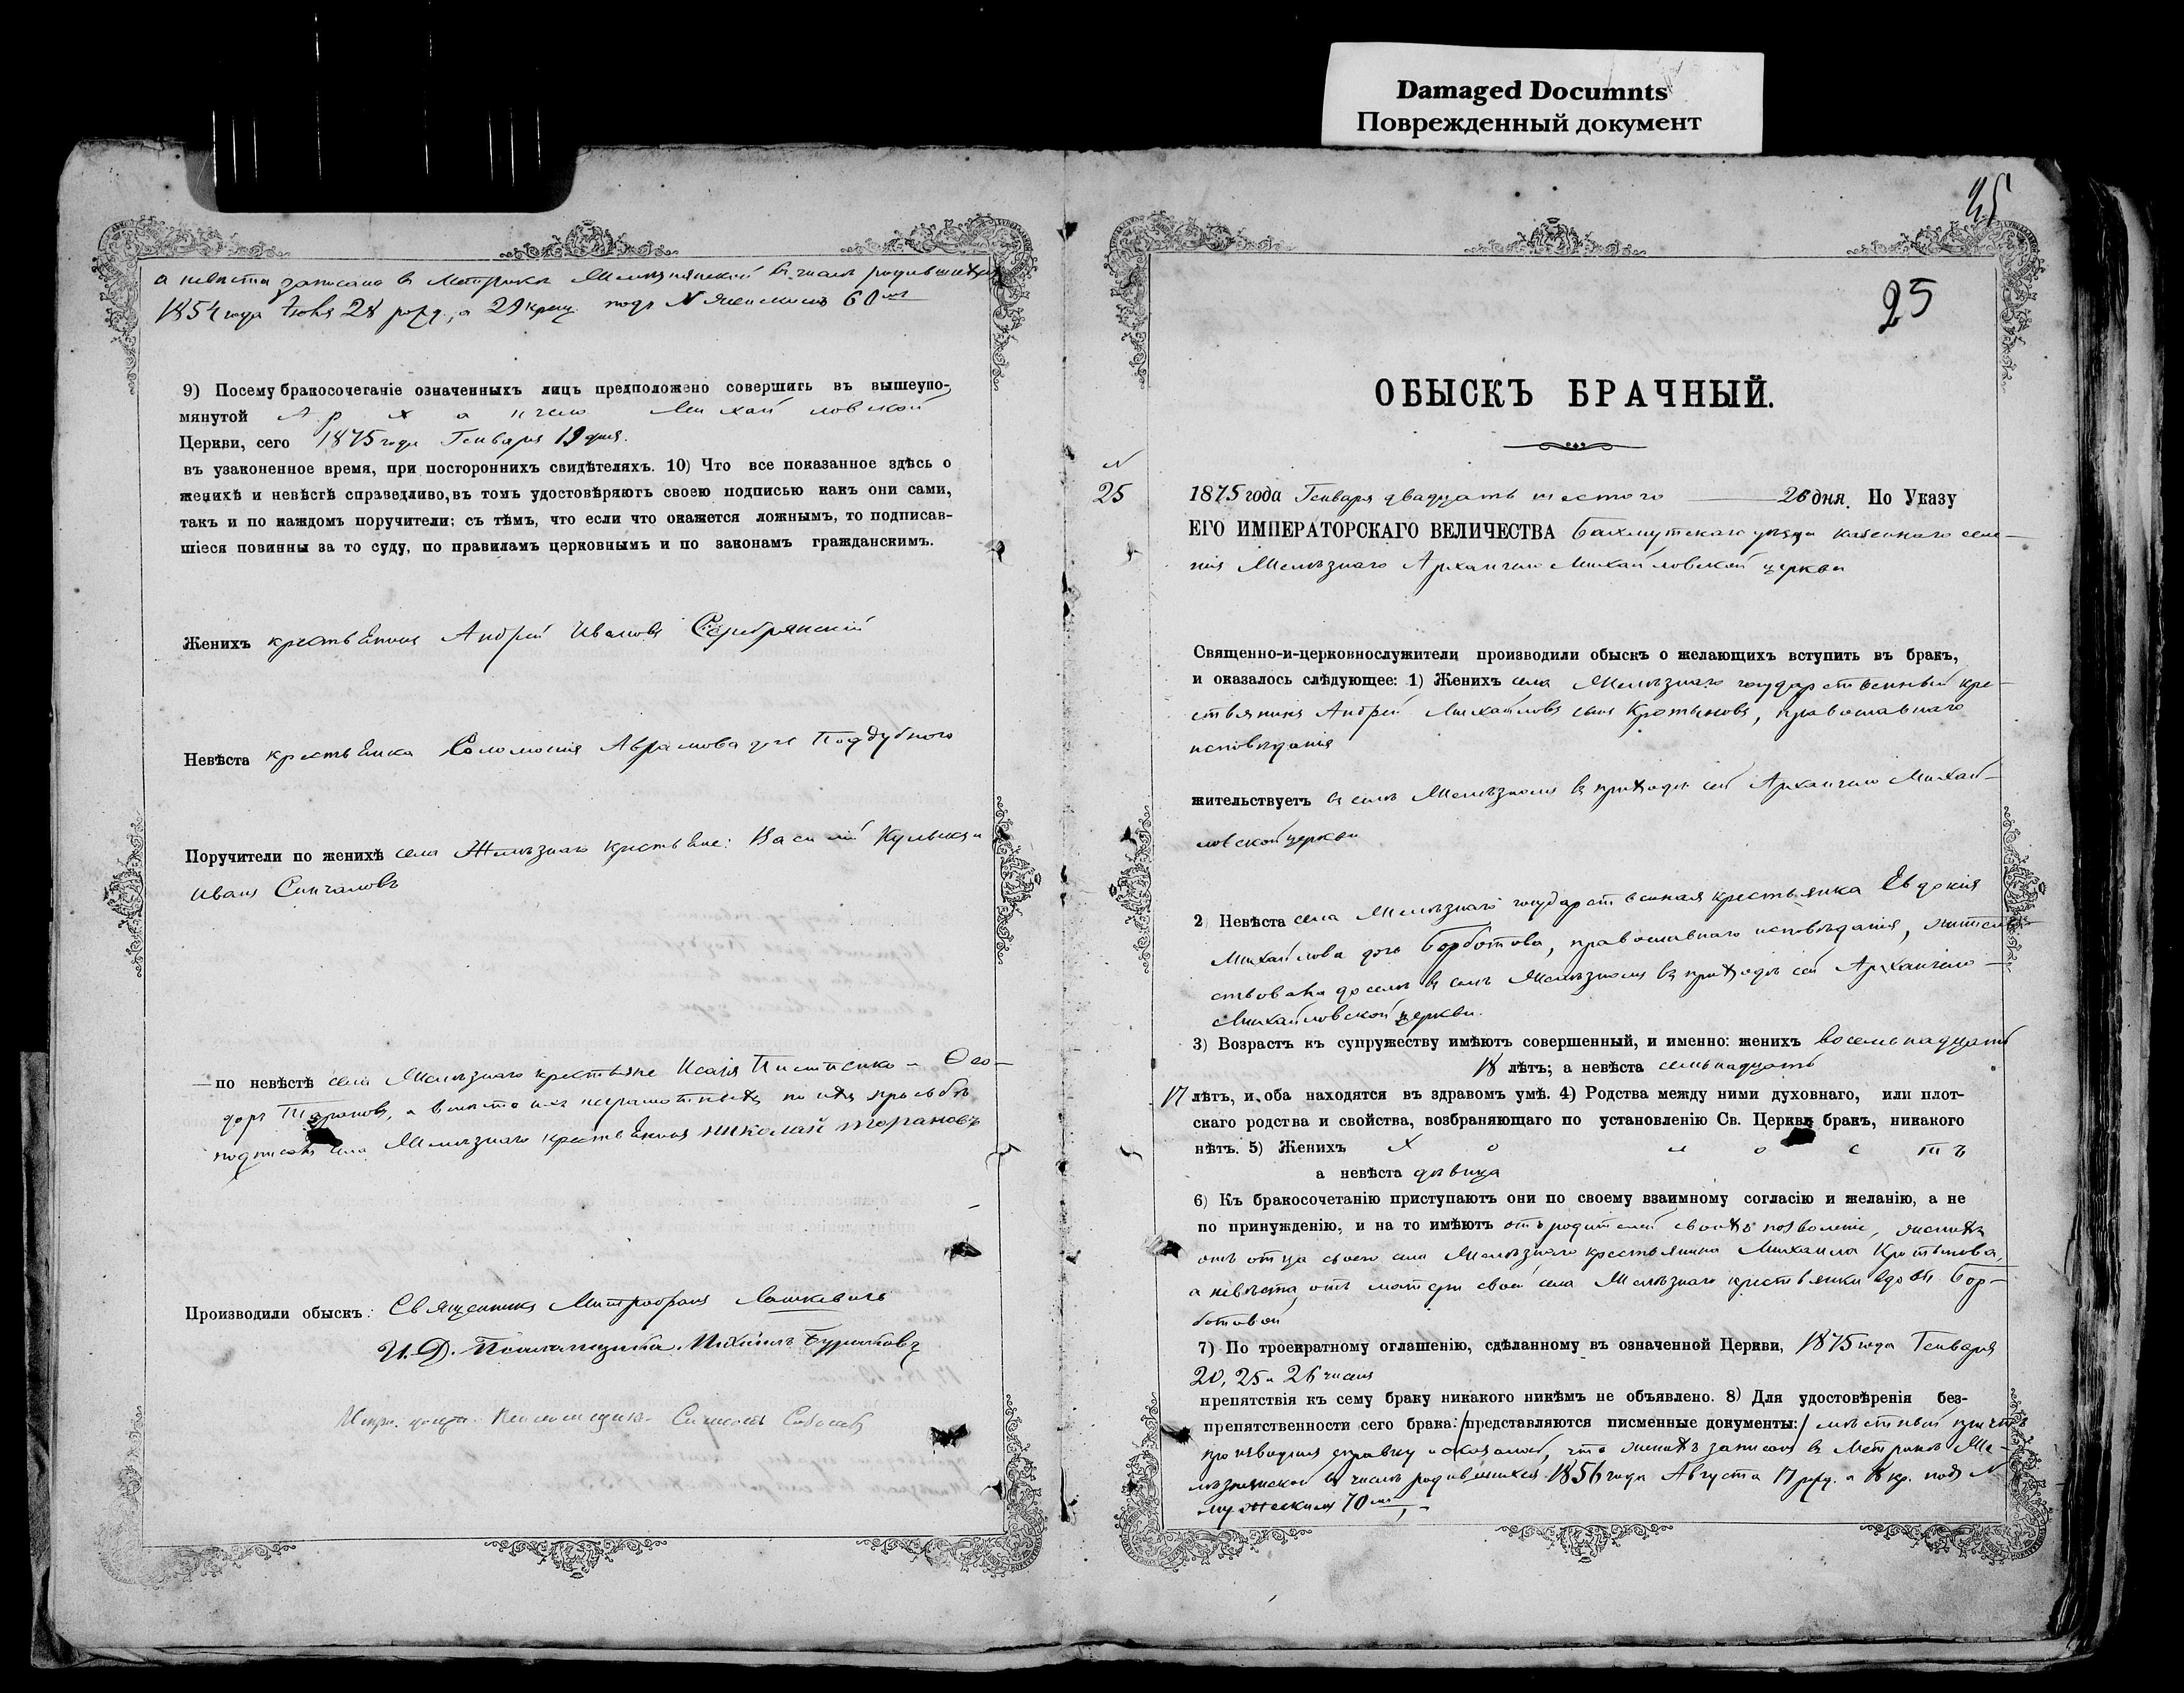 Damaged Documnts
Поврежденный документ
а невѣста записана в Метрикѣ Желѣзнянской въ числѣ родившихся
1854 года Іюня 28 рожд., а 29 крещ. подъ № женскимъ 60мъ
9) Посему бракосочетаніе означенныхъ лицъ предположено совершить въ вышеупо-
мянутой Архангело Михайловской
Церкви, сего 1875 года Генваря 19 дня.
въ узаконенное время, при постороннихъ свидѣтеляхъ. 10) Что все показанное здѣсь о
женихѣ и невѣстѣ справедливо, въ томъ удостовѣряютъ своею подписью какъ они сами,
такъ и по каждомъ поручители; съ тѣмъ, что если что окажется ложнымъ, то подписав-
шіеся повинны за то суду, по правиламъ церковнымъ и по законамъ гражданскимъ.
Женихъ крестьянинъ Андрей Ивановъ Серебрянскій
Невѣста крестьянка Соломонія Аврамова доч Поддубного
Поручители по женихѣ села Желѣзнаго крестьяне: Василій Кулика и
Иванъ
— по невѣстѣ села Желѣзнаго крестьяне Исаія и Ѳео-
доръ Тарановъ, а вмѣсто ихъ неграмотныхъ по ихъ прозьбѣ
подписалъ села Желѣзнаго крестьянинъ Николай Тарановъ
Производили обыскъ: Священникъ Митрофанъ Лашкевичь
И. Д. Псаломщика Михаилъ Бурляковъ
Псаломщика
25
25
ОБЫСКЪ БРАЧНЫЙ.
№
25
1875 года Генваря двадцать шестого — 26 дня. По Указу
ЕГО ИМПЕРАТОРСКАГО ВЕЛИЧЕСТВА Бахмутскаго уѣзда казеннаго селе-
нія Желѣзнаго Архангело Михайловской церкви
Священно-и-церковнослужители производили обыскъ о желающихъ вступить въ бракъ,
и оказалось слѣдующее: 1) Женихъ села Желѣзнаго государственный кре-
стьянинъ Андрей Михайловъ сынъ Кротыновъ, православнаго
исповѣданія
жительствуетъ въ селѣ Желѣзномъ въ приходѣ сей Архангело Михай-
ловской церкви
2) Невѣста села Желѣзнаго государственная крестьянка Евдокія
Михайлова дочь Борботова, православнаго исповѣданія, жительст-
ствовала доселѣ въ селѣ Желѣзномъ въ приходѣ сей Архангело —
Михайловской церкви.
3) Возрастъ къ супружеству имѣютъ совершенный, и именно: женихъ восемьнадцать
18 лѣтъ; а невѣста семьнадцать
17 лѣтъ, и оба находятся въ здравомъ умѣ. 4) Родства между ними духовнаго, или плот-
скаго родства и свойства, возбраняющаго по установленію Св. Церкви бракъ, никакого
нѣтъ. 5) Женихъ холостъ
а невѣста дѣвица
6) Къ бракосочетанію приступаютъ они по своему взаимному согласію и желанію, а не
по принужденію, и на то имѣютъ отъ родителей своихъ позволеніе, женихъ
отъ отца своего села Желѣзнаго крестьянина Михаила Кротынова,
а невѣста отъ матери своей села Желѣзнаго крестьянки вдовы Бор-
ботовой
7) По троекратному оглашенію, сдѣланному въ означенной Церкви, 1875 года Генваря
20, 25 и 26 чиселъ
препятствія къ сему браку никакого никѣмъ не объявлено. 8) Для удостовѣренія без-
препятственности сего брака: /представляются писменные документы:/ мѣстный причтъ
производилъ справку и оказалось, что женихъ записанъ въ Метрикѣ Же-
лѣзнянской въ числѣ родившихся 1856 года Августа 17 рожд. а 18 кр. подъ №
мужескимъ 70мъ, —